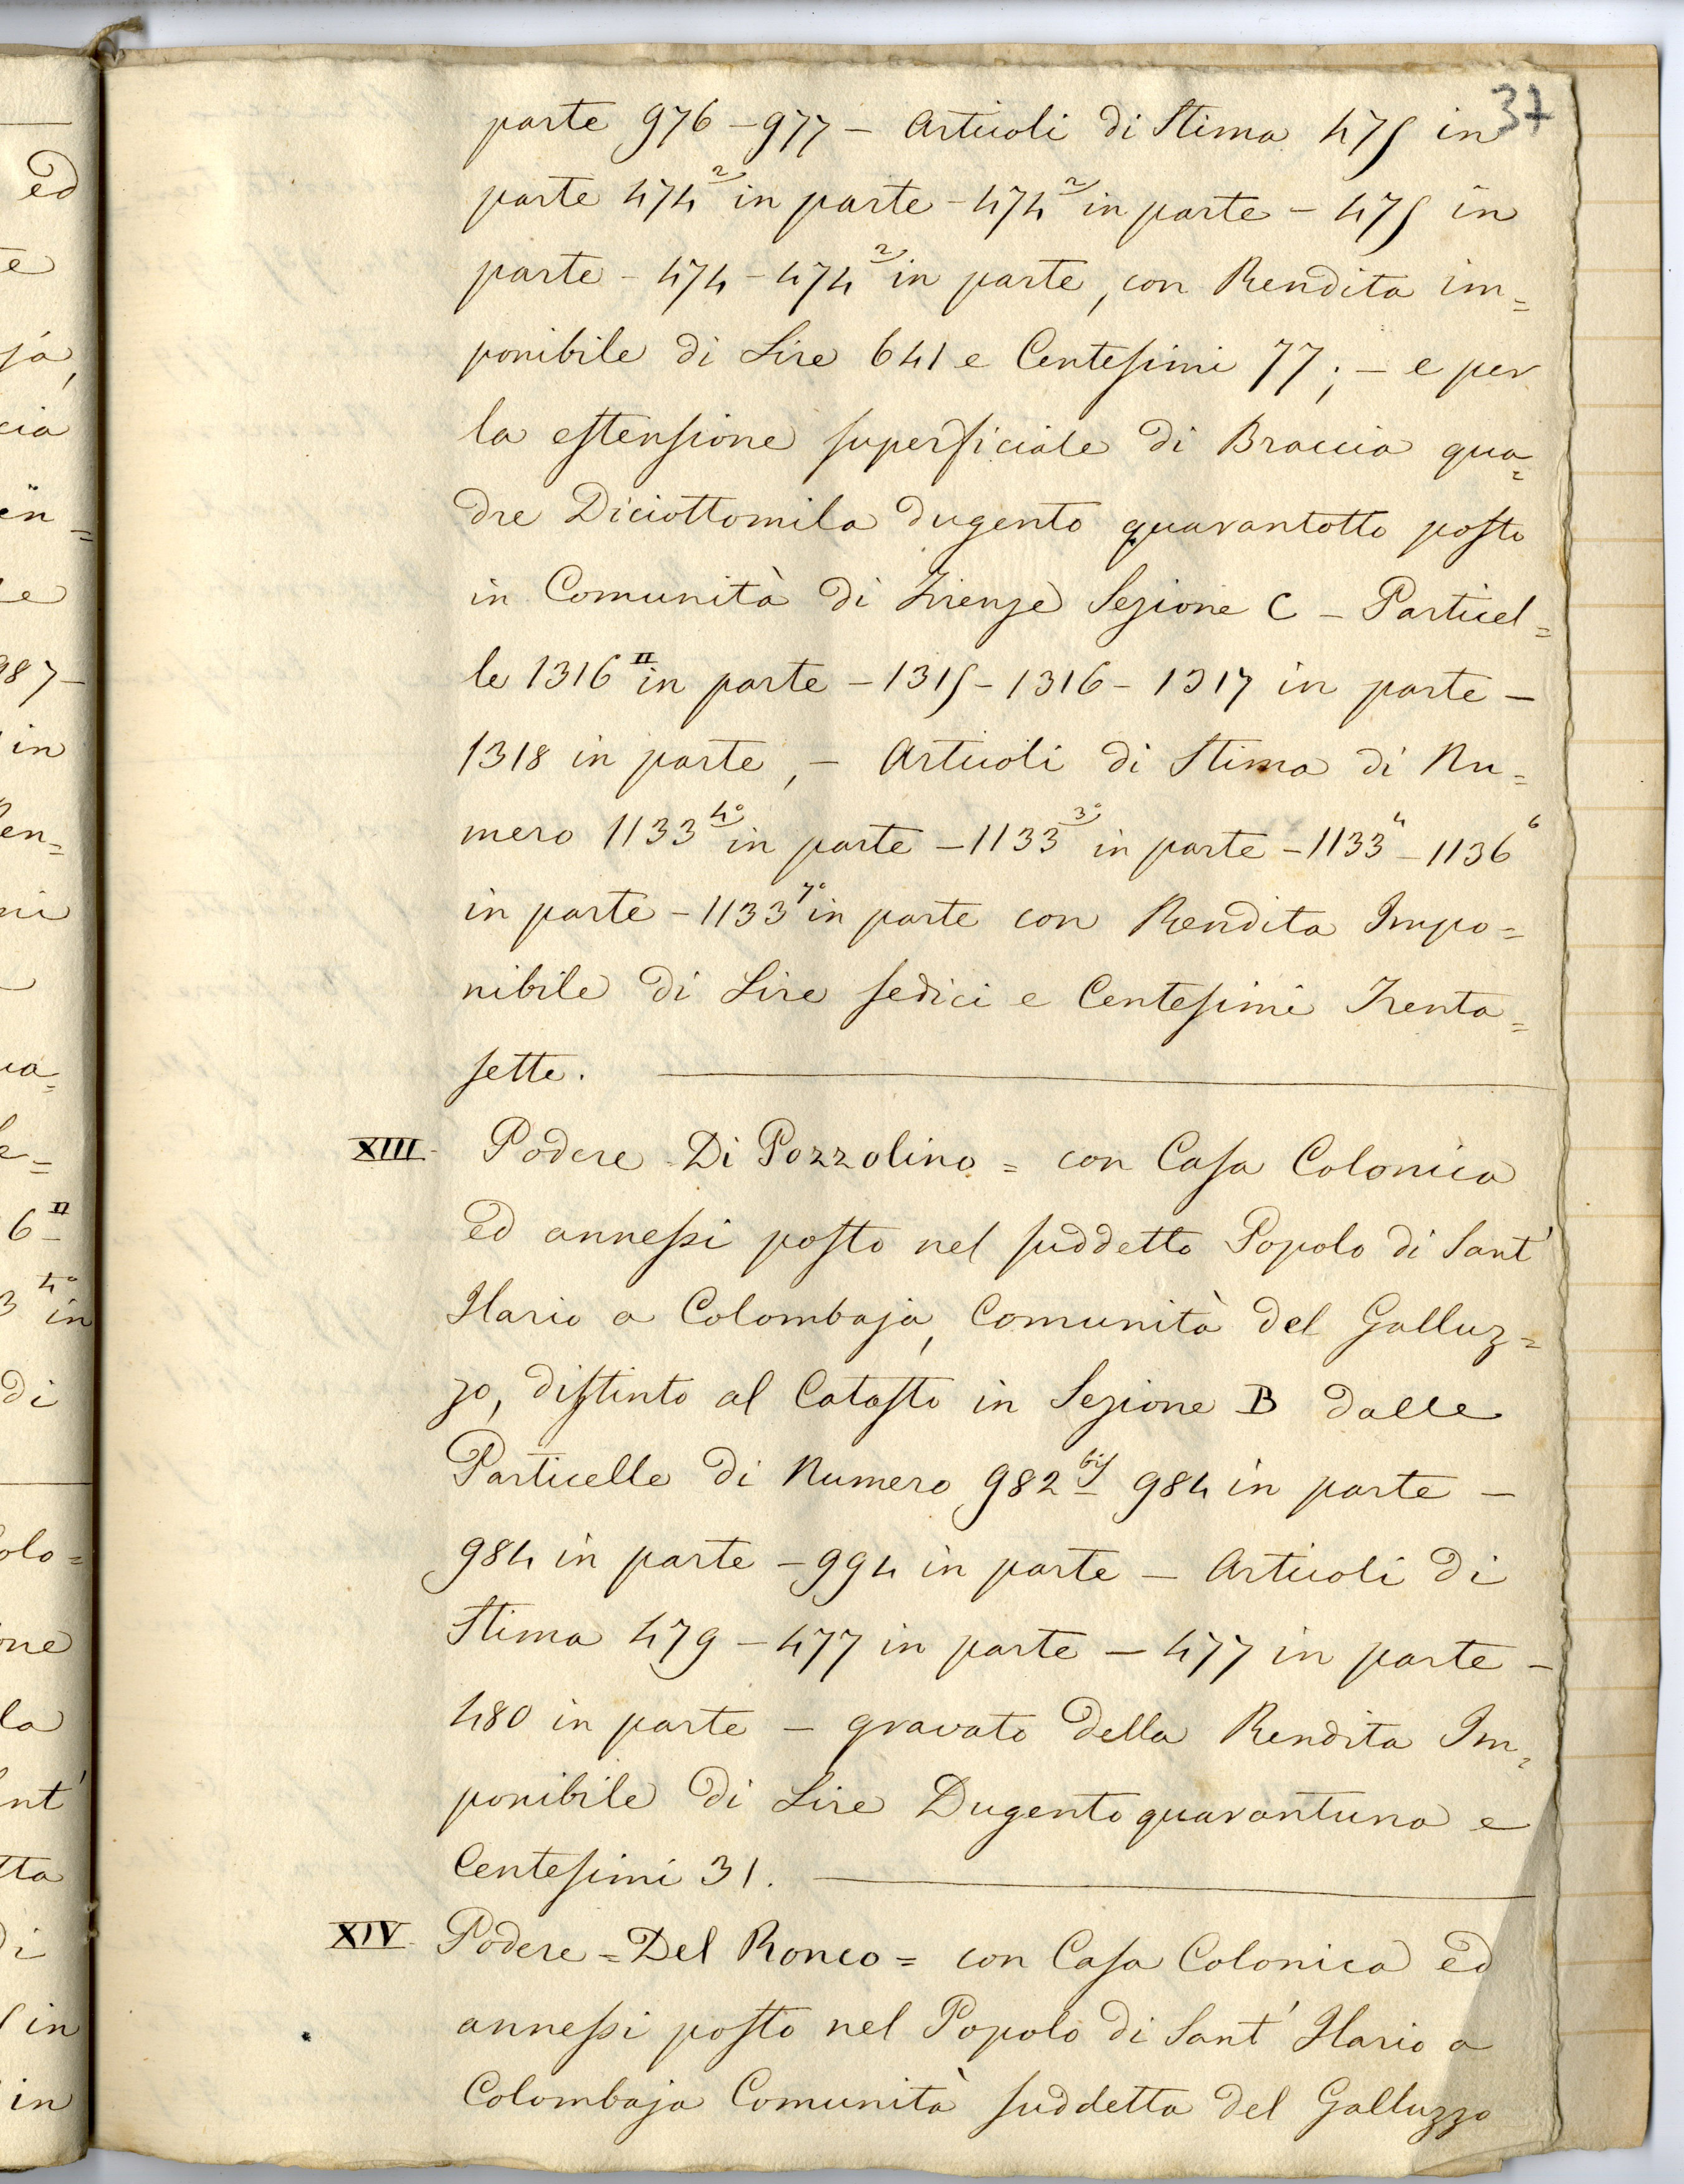 37
parte 976 - 977 - Articoli di Stima 475 in
parte 474² in parte - 474² in parte - 475 in
parte - 474 - 474² in parte, con Rendita im=
ponibile di Lire 641 e Centesimi 77; - e per
la estensione superficiale di Braccia qua=
dre Diciottomila dugento quarantotto posto
in Comunità di Firenze Sezione C - Particel=
le 1316 II in parte - 1315 - 1316 - 1317 in parte -
1318 in parte, - Articoli di Stima di Nu=
mero 1133 4° in parte - 1133 3° in parte - 1133⁴ - 1136⁶
in parte - 1133 7° in parte con Rendita Impo=
nibile di Lire sedici e Centesimi Trenta=
sette.
XIII Podere Di Pozzolino = con Casa Colonica
ed annessi posto nel suddetto Popolo di Sant'
Ilario a Colombaja, Comunità del Galluz=
zo, distinto al Catasto in Sezione B dalle
Particelle di Numero 982 bis 984 in parte -
984 in parte - 994 in parte - Articoli di
Stima 479 - 477 in parte - 477 in parte -
480 in parte - gravato della Rendita Im=
ponibile di Lire Dugentoquarantuna e
Centesimi 31.
XIV Podere = Del Ronco = con Casa Colonica ed
annessi posto nel Popolo di Sant' Ilario a
Colombaja Comunità suddetta del Galluzzo